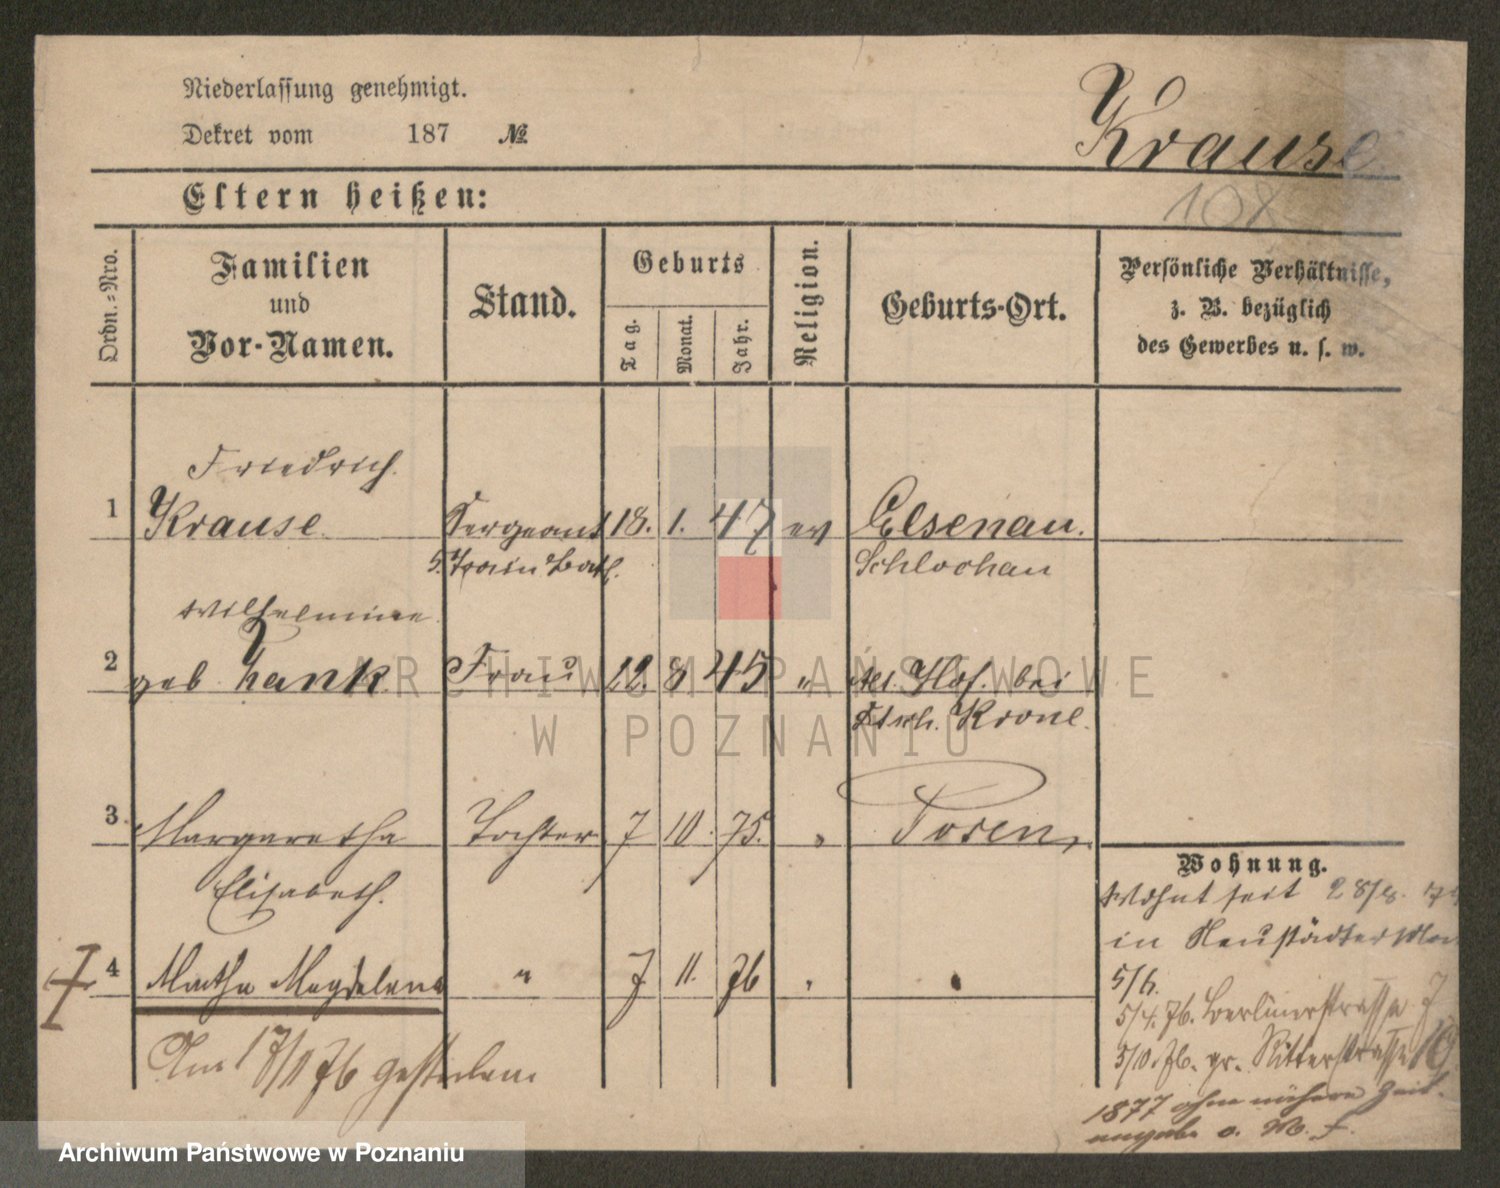 Niederlassung genehmigt.
Dekret vom 187 №
Krause
108
Eltern heißen:
Ordn.=Nro.
Familien und Vor-Namen.
Stand.
Geburts
Tag.
Monat.
Jahr.
Religion.
Geburts-Ort.
Persönliche Verhältnisse,
z. B. bezüglich
des Gewerbes u. s. w.
Friedrich
1 Krause Sergeant 18. 1. 47 ev Elsenau.
5. Train Batl. Schlochau
Wilhelmine
2 geb Frau 22. 8 45 " bei
Krone
3. Margaretha Tochter 7 10. 75. " Posen
Elisabeth.
4 Martha Magdelena " 7 11. 76 "
Am 17/11 76 gestorben
Wohnung.
Wohnt seit 28/8.
in Neustädter
5/6.
5/4. 76. Berlinerstrasse 7
5/10. 76. gr. Ritterstrasse 10
1877 ohne nähere Zeit-
angabe o. M. f.
ARCHIWUM PAŃSTWOWE
W POZNANIU
Archiwum Państwowe w Poznaniu